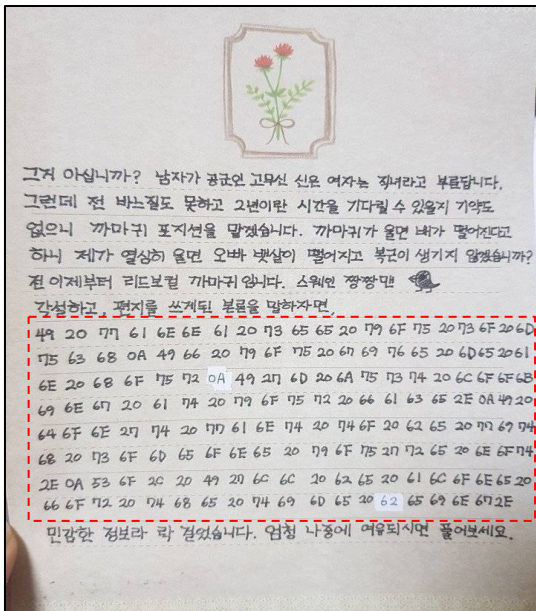 그거 아십니까? 남자가 공군인 고무신 신은 여자는 직녀라고 부른답니다.
그런데 전 바느질도 못하고 2년이란 시간을 기다릴 수 있을지 기약도
없으니 까마귀 포지션을 맡겠습니다. 까마귀가 울면 배가 떨어진다고
하니 제가 열심히 울면 오빠 뱃살이 떨어지고 복근이 생기지 않겠습니까?
전 이제부터 리드보컬 까마귀입니다. 스웩인 짱짱맨
각설하고, 편지를 쓰게된 본론을 말하자면,
49 20 77 61 6E 6E 61 20 73 65 65 20 79 6F 75 20 73 6F 20 6D
75 63 68 0A 49 66 20 79 6F 75 20 67 69 76 65 20 6D 65 20 61
6E 20 68 6F 75 72 0A 49 27 6D 20 6A 75 73 74 20 6C 6F 6F 6B
69 6E 67 20 61 74 20 79 6F 75 72 20 66 61 63 65 2E 0A 49 20
64 6F 6E 27 74 20 77 61 6E 74 20 74 6F 20 62 65 20 77 69 74
68 20 73 6F 6D 65 6F 6E 65 20 79 6F 75 27 72 65 20 6E 6F 74
2E 0A 53 6F 2C 20 49 27 6C 6C 20 62 65 20 61 6C 6F 6E 65 20
66 6F 72 20 74 68 65 20 74 69 6D 65 20 62 65 69 6E 67 2E
민감한 정보라 락 걸었습니다. 엄청 나중에 여유되시면 풀어보세요.